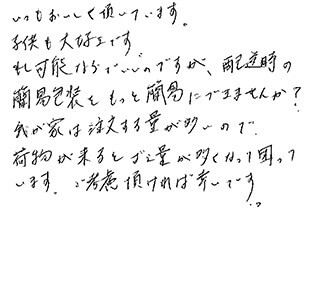 いつもおいしく頂いています。
子供も大好きです
もし可能ならでいいのですが、配達時の
簡易包装をもっと簡易にできませんか?
我が家は注文する量が多いので
荷物が来るとゴミ量が多くなって困って
います。ご考慮頂ければ幸いです